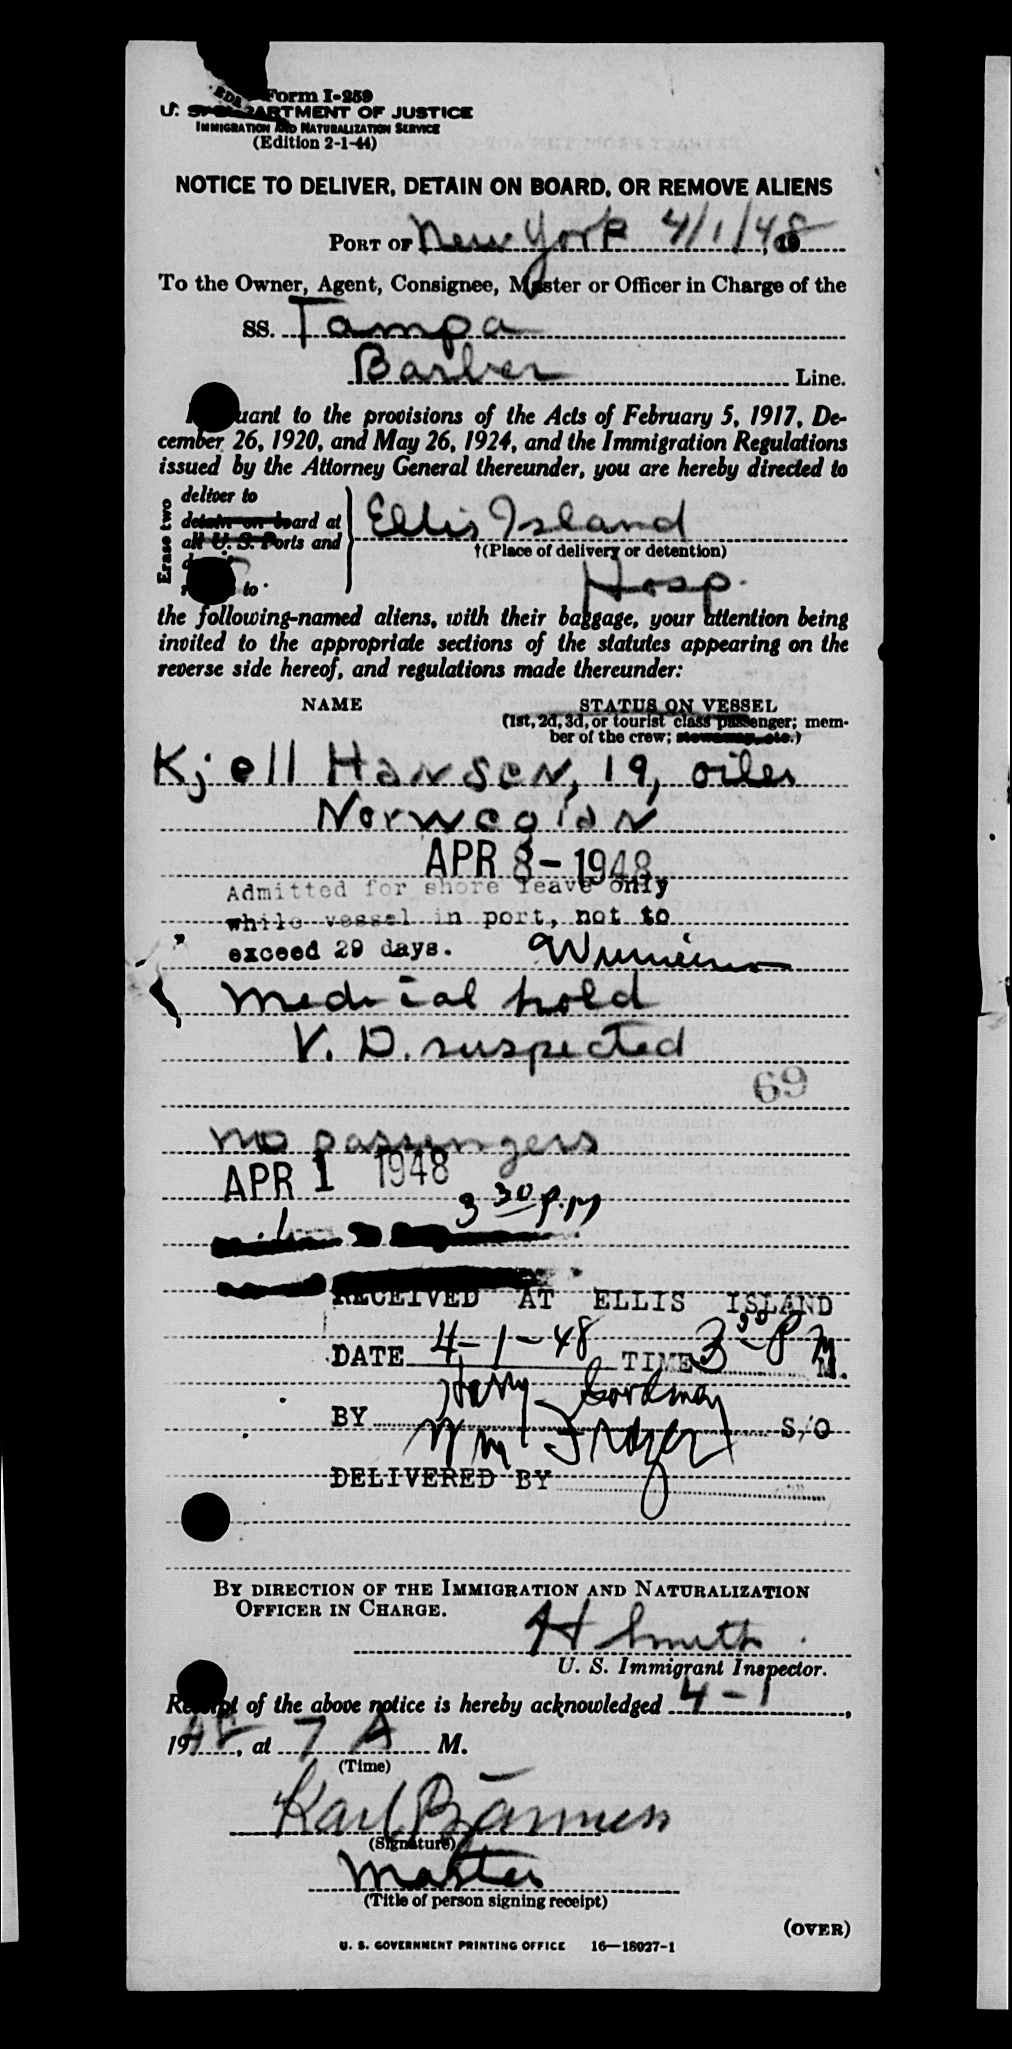 Form I-259
U. S. DEPARTMENT OF JUSTICE
IMMIGRATION AND NATURALIZATION SERVICE
(Edition 2-1-44)
NOTICE TO DELIVER, DETAIN ON BOARD, OR REMOVE ALIENS
PORT OF New York 4/1/48, 19
To the Owner, Agent, Consignee, Master or Officer in Charge of the
SS. Tampa
Barber Line.
Pursuant to the provisions of the Acts of February 5, 1917, De-
cember 26, 1920, and May 26, 1924, and the Immigration Regulations
issued by the Attorney General thereunder, you are hereby directed to
Erase two
deliver to
detain on board at
all U. S. Ports and
to
Ellis Island
†(Place of delivery or detention)
Hosp.
the following-named aliens, with their baggage, your attention being
invited to the appropriate sections of the statutes appearing on the
reverse side hereof, and regulations made thereunder:
NAME STATUS ON VESSEL
(1st, 2d, 3d, or tourist class passenger; mem-
ber of the crew; stowaway, etc.)
Kjell Hansen, 19, oiler
Norwegian
APR 8-1948
Admitted for shore leave only
while vessel in port, not to
exceed 29 days.
Medical hold
V. D. suspected
69
no passengers
APR 1 1948
3 30 P.M
RECEIVED AT ELLIS ISLAND
DATE 4-1-48 TIME 3 30 P M.
Harry Goodman
BY S/O
Wm Frazer
DELIVERED BY
BY DIRECTION OF THE IMMIGRATION AND NATURALIZATION
OFFICER IN CHARGE.
H Smith
U. S. Immigrant Inspector.
Receipt of the above notice is hereby acknowledged 4-1,
1948, at 7 A M.
(Time)
Karl
(Signature)
Master
(Title of person signing receipt)
(OVER)
U. S. GOVERNMENT PRINTING OFFICE 16—18027-1